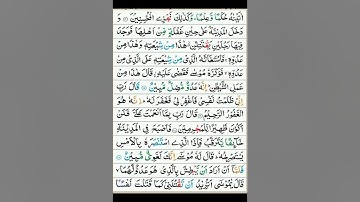 اٰتَيْنٰهُ حُكْمًا وَّعِلْمًا ؕ وَكَذٰلِكَ نَجْزِی الْمُحْسِنِيْنَ وَ
دَخَلَ الْمَدِيْنَةَ عَلٰى حِيْنِ غَفْلَةٍ مِّنْ اَهْلِهَا فَوَجَدَ
فِيْهَا رَجُلَيْنِ يَقْتَتِلٰنِ هٰذَا مِنْ شِيْعَتِهٖ وَهٰذَا مِنْ
عَدُوِّهٖ ۚ فَاسْتَغَاثَهُ الَّذِیْ مِنْ شِيْعَتِهٖ عَلَى الَّذِیْ مِنْ
عَدُوِّهٖ ۙ فَوَكَزَهٗ مُوْسٰى فَقَضٰى عَلَيْهِ ۫ قَالَ هٰذَا
مِنْ عَمَلِ الشَّيْطٰنِ ؕ اِنَّهٗ عَدُوٌّ مُّضِلٌّ مُّبِيْنٌ قَالَ رَبِّ
اِنِّیْ ظَلَمْتُ نَفْسِیْ فَاغْفِرْ لِیْ فَغَفَرَ لَهٗ ؕ اِنَّهٗ هُوَ
الْغَفُوْرُ الرَّحِيْمُ قَالَ رَبِّ بِمَاۤ اَنْعَمْتَ عَلَیَّ فَلَنْ
اَكُوْنَ ظَهِيْرًا لِّلْمُجْرِمِيْنَ فَاَصْبَحَ فِی الْمَدِيْنَةِ
خَآئِفًا يَّتَرَقَّبُ فَاِذَا الَّذِی اسْتَنْصَرَهٗ بِالْاَمْسِ
يَسْتَصْرِخُهٗ ؕ قَالَ لَهٗ مُوْسٰۤى اِنَّكَ لَغَوِیٌّ مُّبِيْنٌ
فَلَمَّاۤ اَنْ اَرَادَ اَنْ يَّبْطِشَ بِالَّذِیْ هُوَ عَدُوٌّ لَّهُمَا ۙ
قَالَ يٰمُوْسٰۤى اَتُرِيْدُ اَنْ تَقْتُلَنِیْ كَمَا قَتَلْتَ نَفْسًا